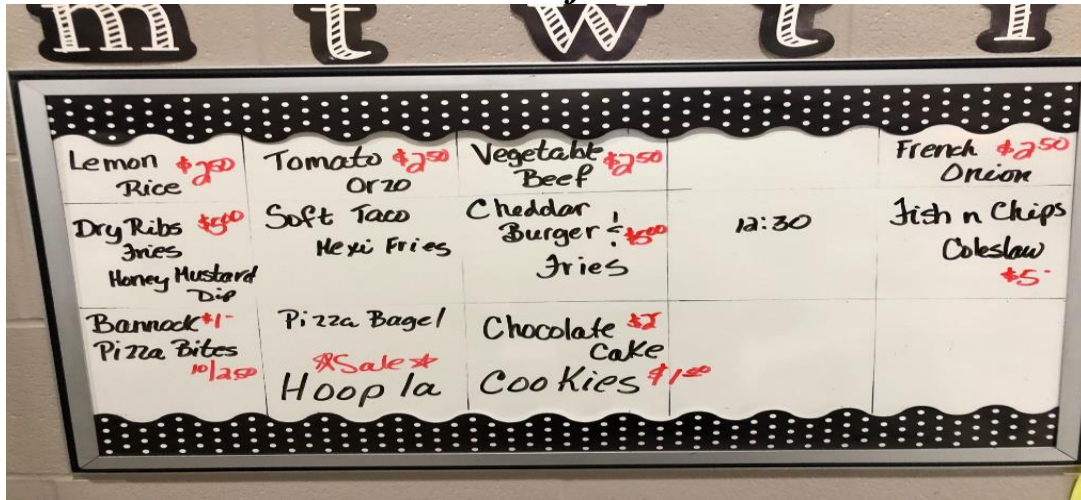 m t w t f
Lemon $2.50
Rice
Tomato $2.50
Orzo
Vegetable $2.50
Beef
French $2.50
Onion
Dry Ribs $5.00
Fries
Honey Mustard
Dip
Soft Taco
Mexi Fries
Cheddar
Burger & $5.00
Fries
12:30
Fish n Chips
Coleslaw
$5-
Bannock $1-
Pizza Bites
10/2.50
Pizza Bagel
Sale
Hoopla
Chocolate $2
Cake
Cookies $1.00